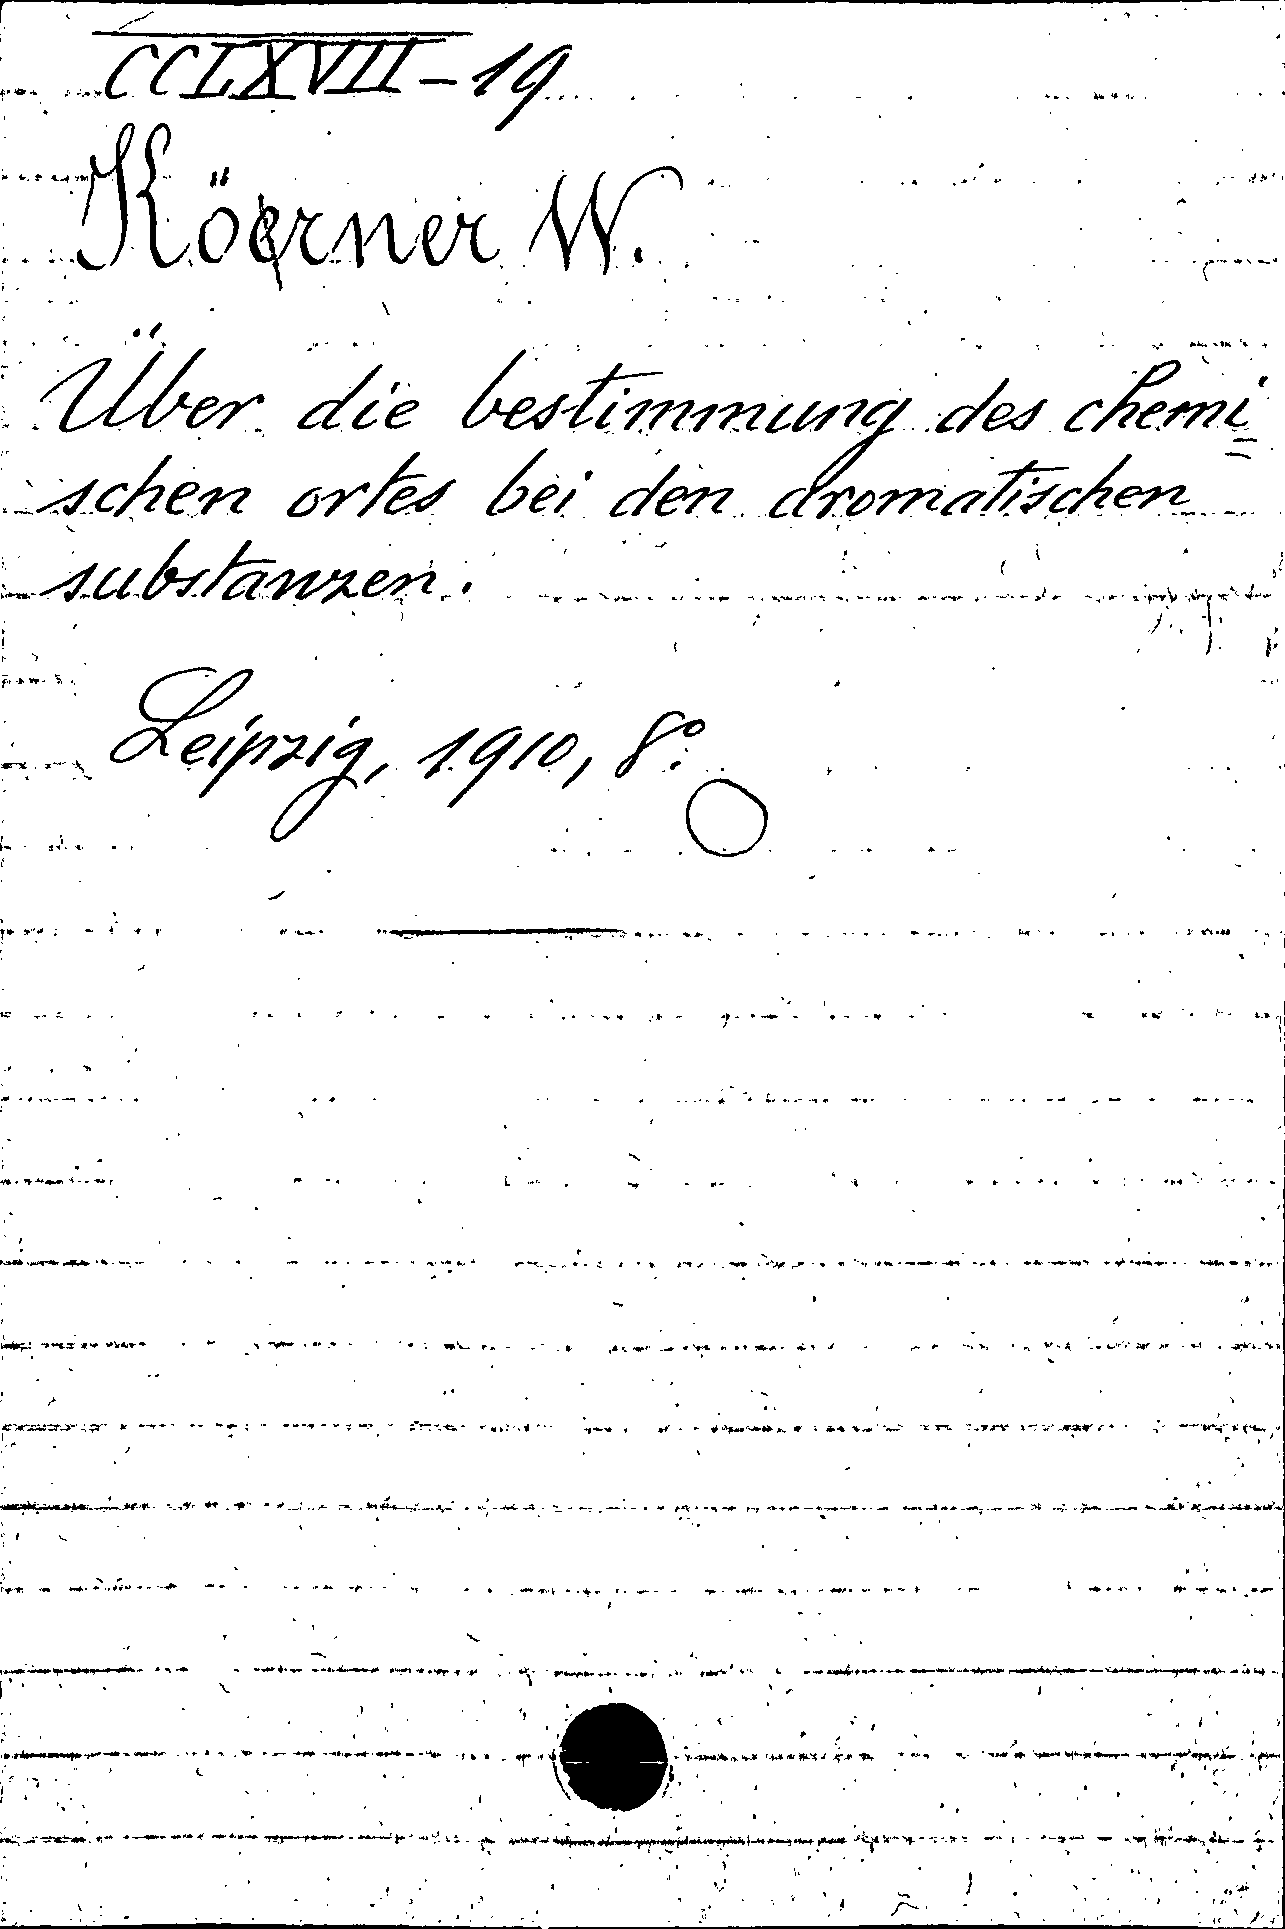 CCLXVII-19
Körner W.
Über die bestimmung des chemi=
schen ortes bei den aromatischen
substanzen.
Leipzig, 1910, 8°.